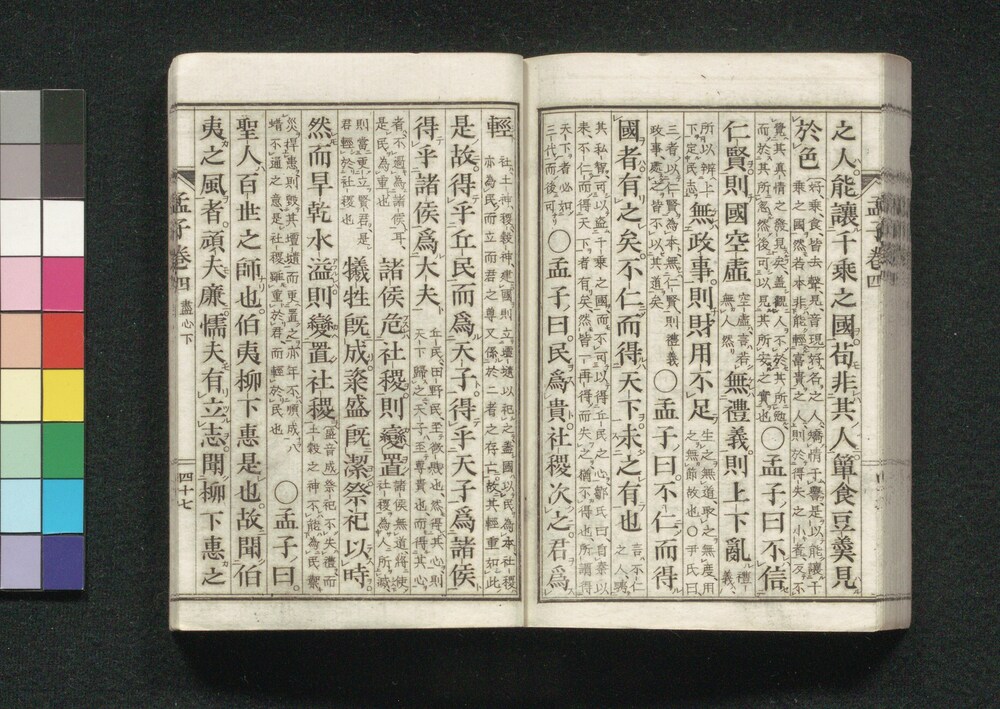 孟子卷四
之人能讓千乘之國苟非其人簞食豆羹見
於色
好乘食皆去聲見音現好名之人矯情干譽是以能讓千
乘之國然若本非能輕富貴之人則於得失之小者反不
覺其真情之發見矣蓋觀人不於其所勉
而於其所忽然後可以見其所安之實也
○孟子曰不信
仁賢則國空虛
空虛言若
無人然
無禮義則上下亂
禮義
所以辨上
下定民志
無政事則財用不足
生之無道取之無度用
之無節故也○尹氏曰
三者以仁賢為本無仁賢則禮義
政事處之皆不以其道矣
○孟子曰不仁而得
國者有之矣不仁而得天下未之有也
言不仁
之人騁
其私智可以盜千乘之國而不可以得丘民之心鄒氏曰自秦以
來不仁而得天下者有矣然皆一再傳而失之猶不得也所謂得
天下者必如
三代而後可
○孟子曰民爲貴社稷次之君爲
輕
社土神稷穀神建國則立壇壝以祀之蓋國以民為本社稷
亦為民而立而君之尊又係於二者之存亡故其輕重如此
是故得乎丘民而爲天子得乎天子爲諸侯
得乎諸侯爲大夫
丘民田野民至微賤也然得其心則
天下歸之天子至尊貴也而得其心
者不過為諸侯耳
是民為重也
諸侯危社稷則變置
諸侯無道將使
社稷為人所滅
則當更立賢君是
君輕於社稷也
犧牲既成粢盛既潔祭祀以時
然而旱乾水溢則變置社稷
盛音成祭祀不失禮而
土穀之神不能為民禦
災捍患則毀其壇壝而更置之亦年不順成八
蜡不通之意是社稷雖重於君而輕於民也
○孟子曰
聖人百世之師也伯夷柳下惠是也故聞伯
夷之風者頑夫廉懦夫有立志聞柳下惠之
孟子卷四 盡心下 四十七